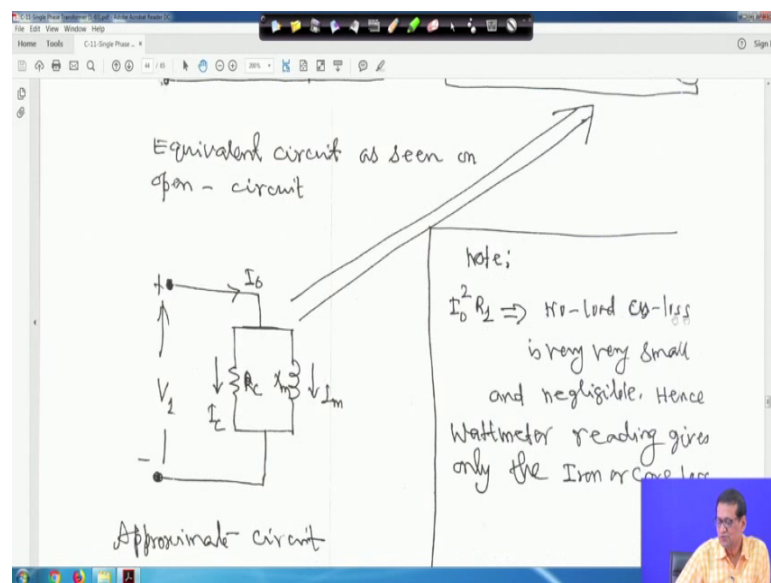 C-11-Single Phase Transformer (1-61).pdf - Adobe Acrobat Reader DC
File Edit View Window Help
Home Tools C-11-Single Phase ... ×
Sign
44 / 61
200%
Equivalent circuit as seen on
open - circuit
I0
+
V1
-
Rc
Ic
xm
Im
Approximate circuit
Note:
I0² R1 ⇒ No-load cu-loss
is very very small
and negligible. Hence
Wattmeter reading gives
only the Iron or Core loss